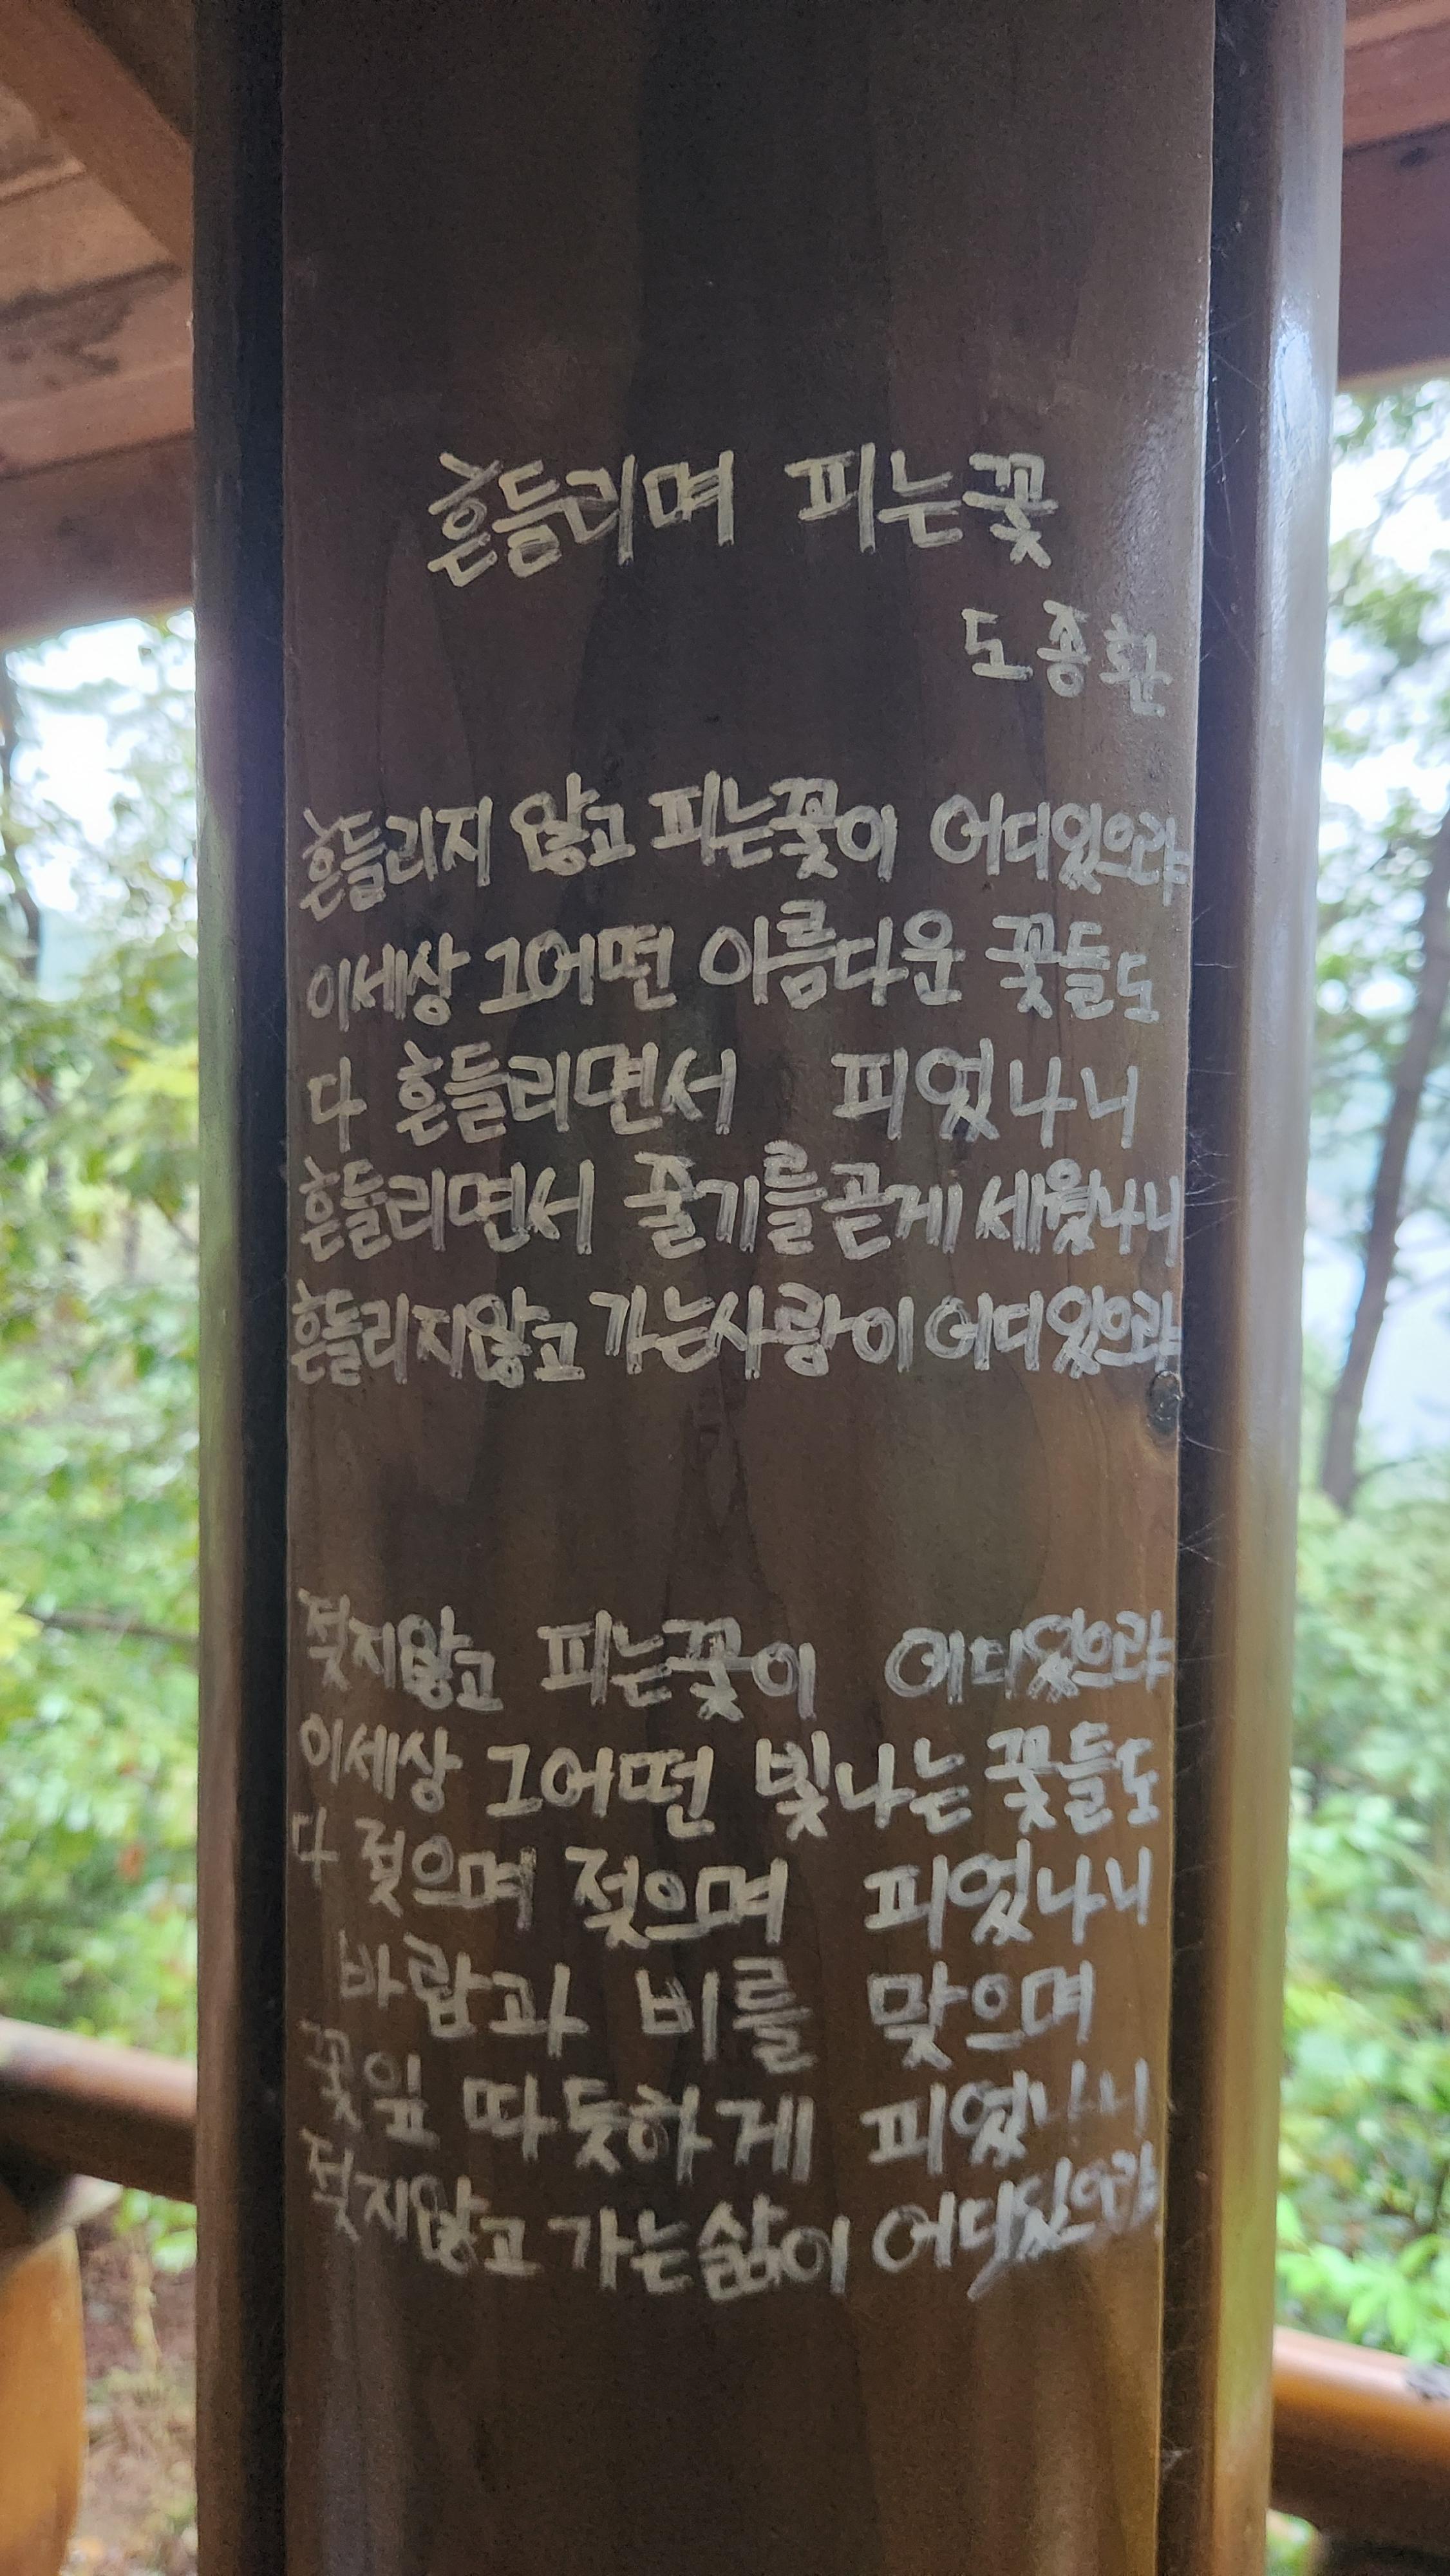 흔들리며 피는꽃
도종환
흔들리지 않고 피는꽃이 어디있으랴
이세상 그어떤 아름다운 꽃들도
다 흔들리면서 피었나니
흔들리면서 줄기를곧게 세웠나니
흔들리지않고 가는사랑이 어디있으랴
젖지않고 피는꽃이 어디있으랴
이세상 그어떤 빛나는 꽃들도
다 젖으며 젖으며 피었나니
바람과 비를 맞으며
꽃잎 따듯하게 피웠나니
젖지않고 가는삶이 어디있으랴